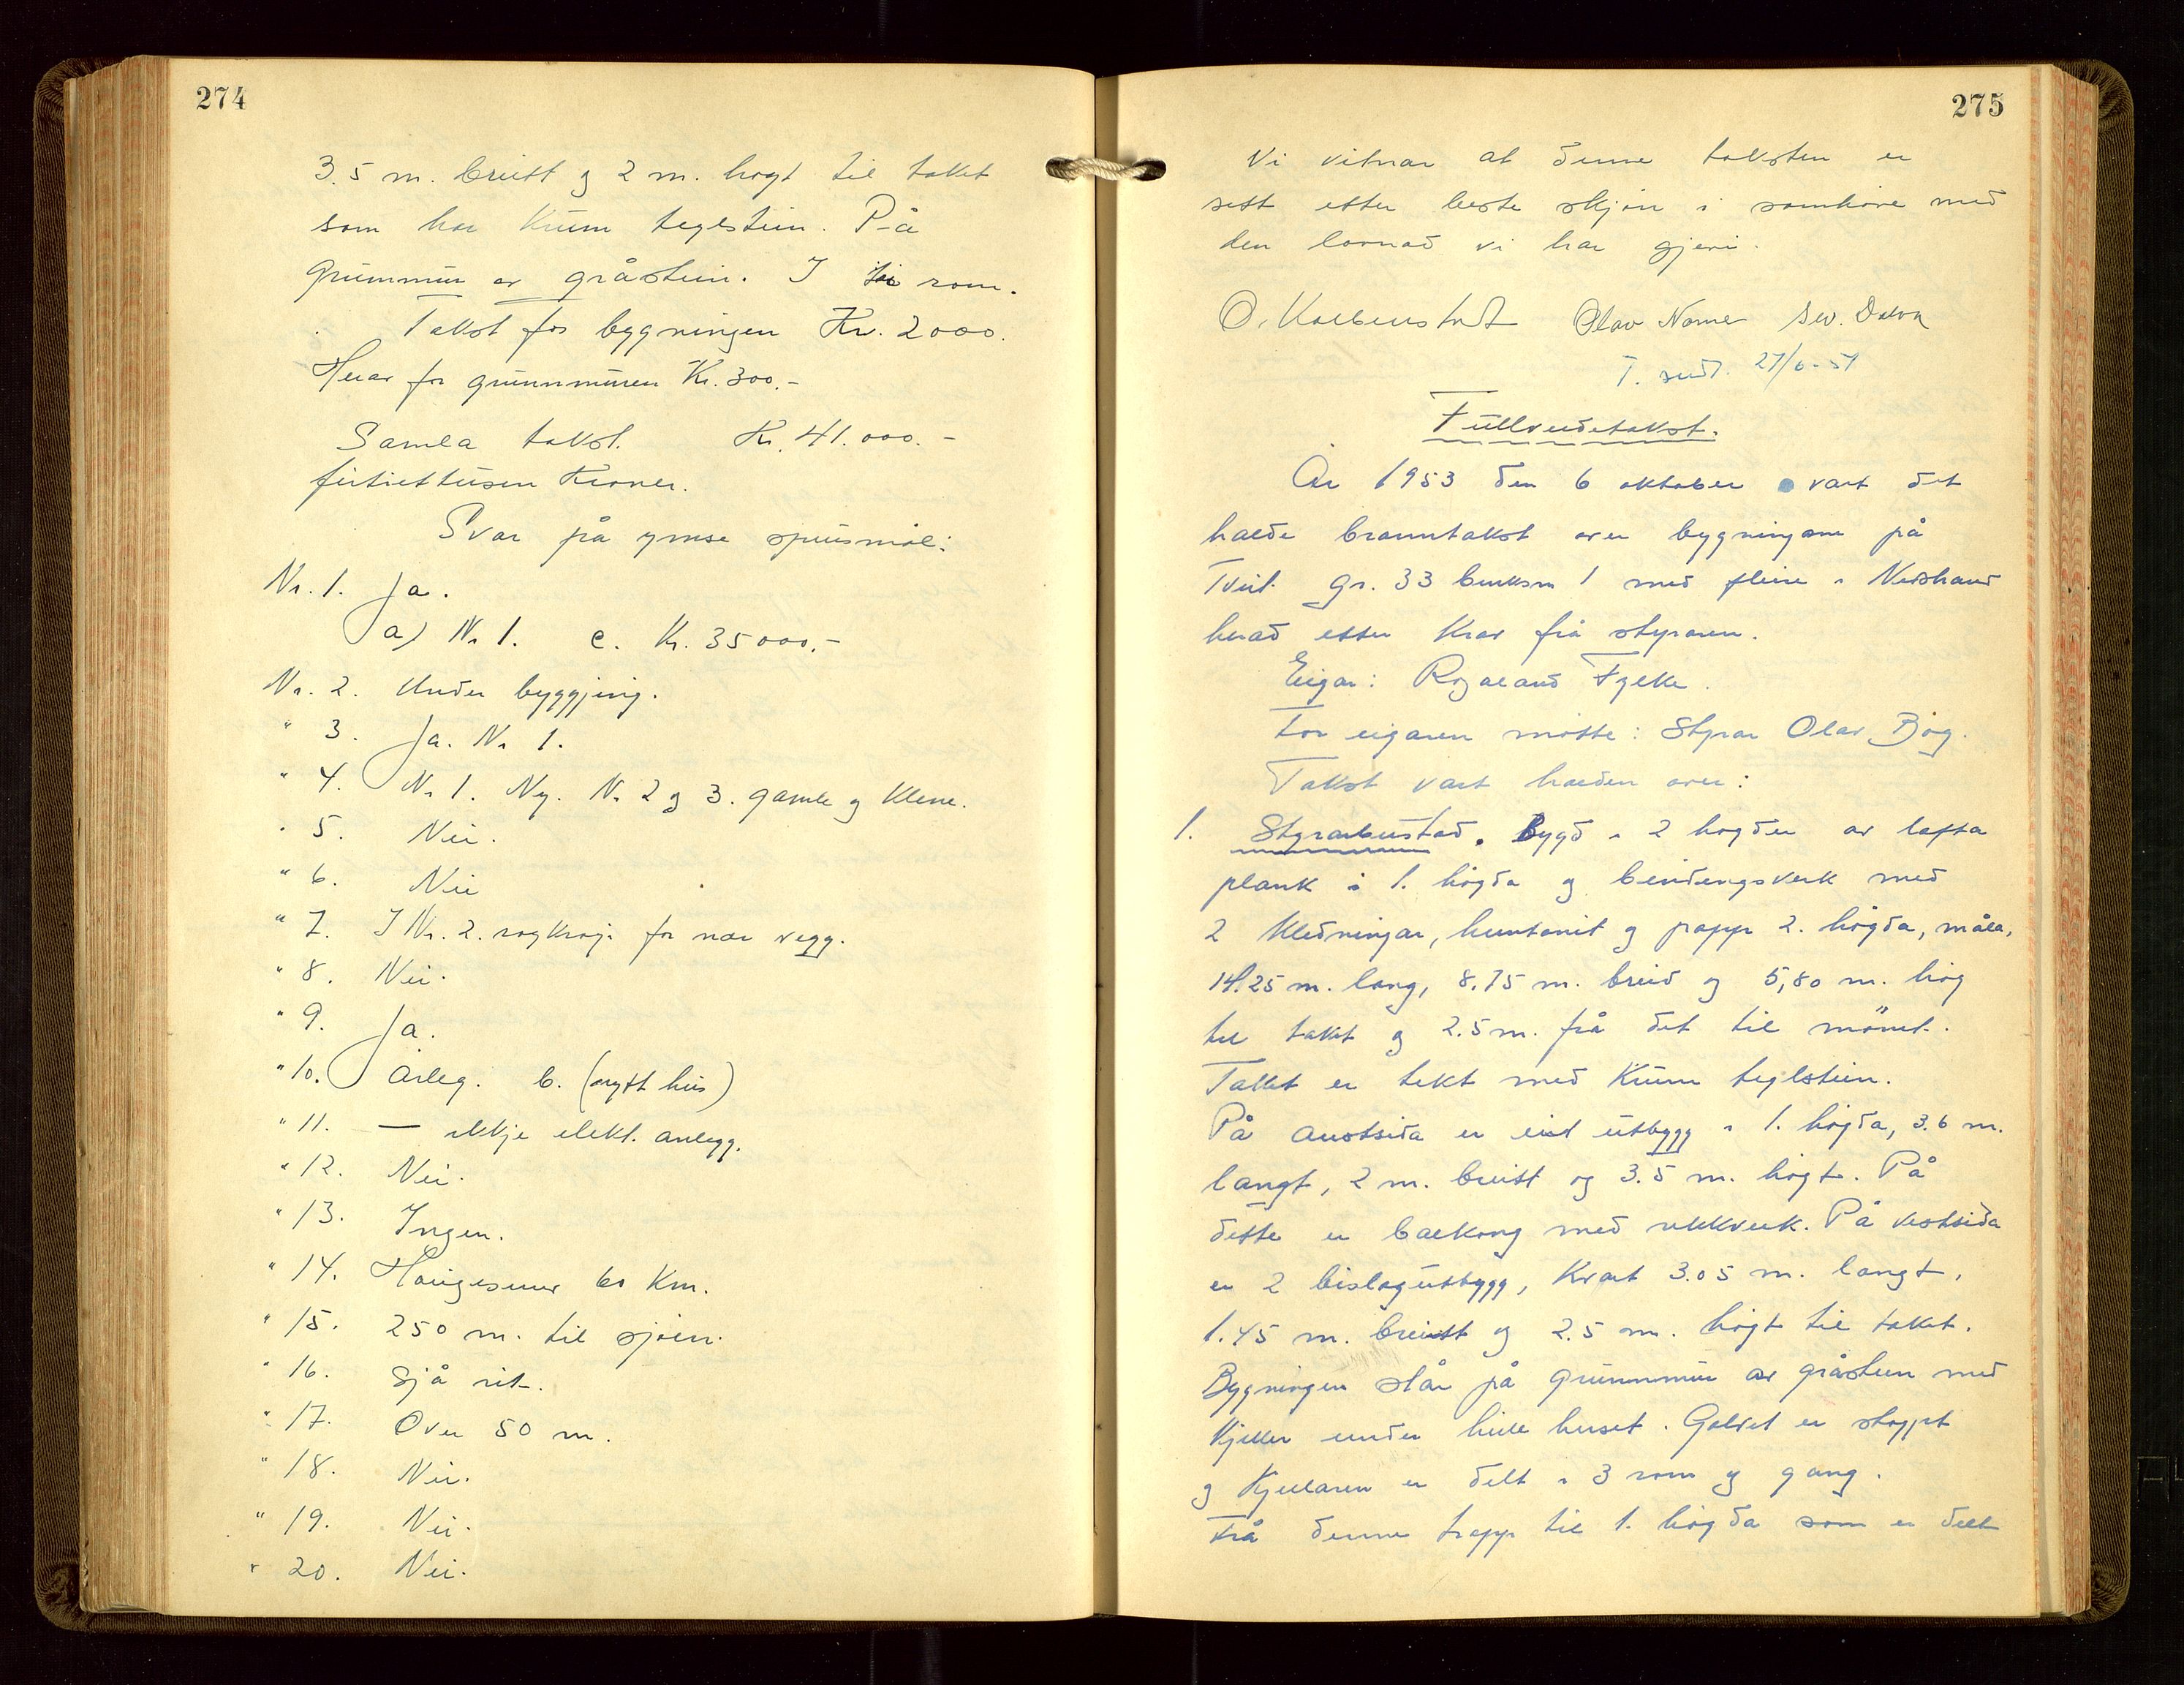 274
3.5 m. breitt og 2 m. høgt til taket
som har krum teglstein. På
grunnmur av gråstein. I rom.
Takst for bygningen Kr. 2000.
Herav for grunnmuren Kr. 300.-
Samla takst. Kr. 41.000.-
førtieittusen kroner.
Svar på ymse spursmål:
Nr. 1. Ja.
a) Nr 1. e. Kr. 35000.-
Nr. 2. Under byggjing.
" 3. Ja. Nr 1.
" 4. Nr 1. Ny. Nr 2 og 3. gamle og klene.
" 5. Nei.
" 6. Nei
" 7. I Nr. 2. for nær vegg.
" 8. Nei.
" 9. Ja.
" 10. Årleg. b. (nytt hus)
" 11. — ikkje elekt. anlegg.
" 12. Nei.
" 13. Ingen.
" 14. Haugesund 60 Km.
" 15. 250 m. til sjøen.
" 16. Sjå rit.
" 17. Over 50 m.
" 18. Nei.
" 19. Nei.
" 20. Nei.
275
Vi vitnar at denne taksten er
sett etter beste skjøn i samhøve med
den lovnad vi har gjevi.
Olav
T. sendt. 27/6-51
Fullverdetakst.
År 1953 den 6 oktober vart det
halde branntakst over bygningane på
Tveit gr. 33 bruksnr 1 med fleire i Nedstrand
herad etter krav frå styraren.
Eigar: Rogaland Fylke.
For eigaren møtte: Styrar Olav Bjøg.
Takst vart halden over:
1. Styrarbustad. Bygd i 2 høgder av lafta
plank i 1. høgda og bindingsverk med
2 kledningar, huntonit og papp 2. høgda, måla,
14.25 m. lang, 8.75 m. breid og 5,80 m. høg
til taket og 2.5 m. frå det til mønet.
Taket er tekt med krum teglstein.
På austsida er eit utbygg i 1. høgda, 3.6 m.
langt, 2 m. breitt og 3.5 m. høgt. På
dette er balkong med rekkverk. På vestsida
er 2 bislagutbygg, kvart 3.05 m. langt,
1.45 m. breitt og 2.5 m. høgt til taket.
Bygningen står på grunnmur av gråstein med
kjeller under heile huset. Golvet er støypt
og kjellaren er delt i 3 rom og gang.
Frå denne trapp til 1. høgda som er delt